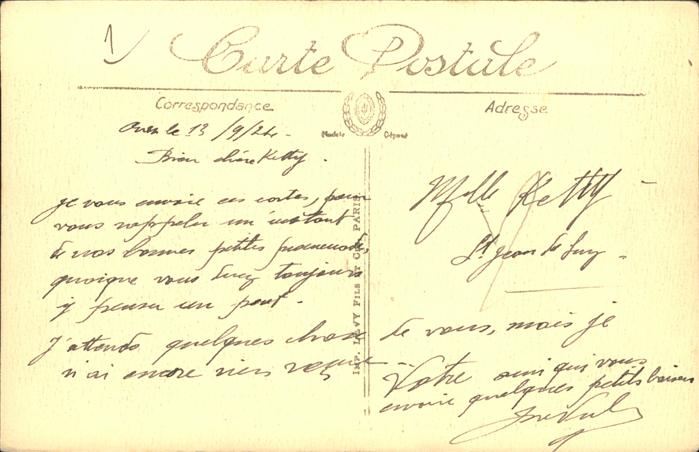 1
Carte Postale
Correspondance
Adresse
Modèle Déposé
le 13/9/24.
Bien chère Ketty.
je vous envoie ces cartes, pour
vous rappeler un instant
de nos bonnes petites promenades,
quoique vous devez toujours
y penser un peu.
J'attends quelques chose de vous, mais je
n'ai encore rien reçu
Votre ami qui vous
envoie quelques petits baisers
Mlle Ketty
St Jean de Luz
IMP. LEVY FILS ET CIE, PARIS